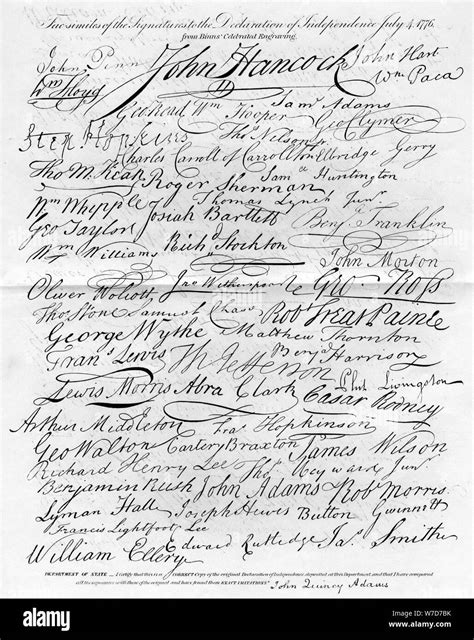 Fac-similes of the Signatures to the Declaration of Independence July 4, 1776.
from Binns' Celebrated Engraving.
John Penn John Hancock John Hart
Wm Floyd Wm Paca
Geo Read Wm Hooper Saml Adams
Geo Clymer
Step Hopkins Thos Nelson jr
Charles Carroll of Carrollton Elbridge Gerry
Tho M. Kean Roger Sherman Saml Huntington
Wm Whipple Thomas Lynch Junr
Geo Taylor Josiah Bartlett Benj Franklin
Wm Williams Richd Stockton John Morton
Oliver Wolcott Jno Witherspoon Geo Ross
Thos Stone Samuel Chase Robt Treat Paine
George Wythe Matthew Thornton
Frans Lewis Th Jefferson Benj Harrison
Lewis Morris Abra Clark Phil Livingston
Cæsar Rodney
Arthur Middleton Fras Hopkinson
Geo Walton Carter Braxton James Wilson
Richard Henry Lee Thos Heyward Junr
Benjamin Rush John Adams Robt Morris
Lyman Hall Joseph Hewes Button Gwinnett
Francis Lightfoot Lee
William Ellery Edward Rutledge Jas Smith
DEPARTMENT OF STATE I certify that this is a CORRECT Copy of the original Declaration of Independence deposited at this Department, and that I have compared
all the signatures with those of the original and have found them EXACT IMITATIONS John Quincy Adams
alamy
Image ID: W7D7BK
www.alamy.com